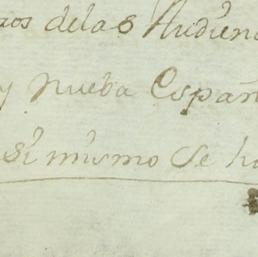 delas Audien
y nueba Españ
si mismo se ha